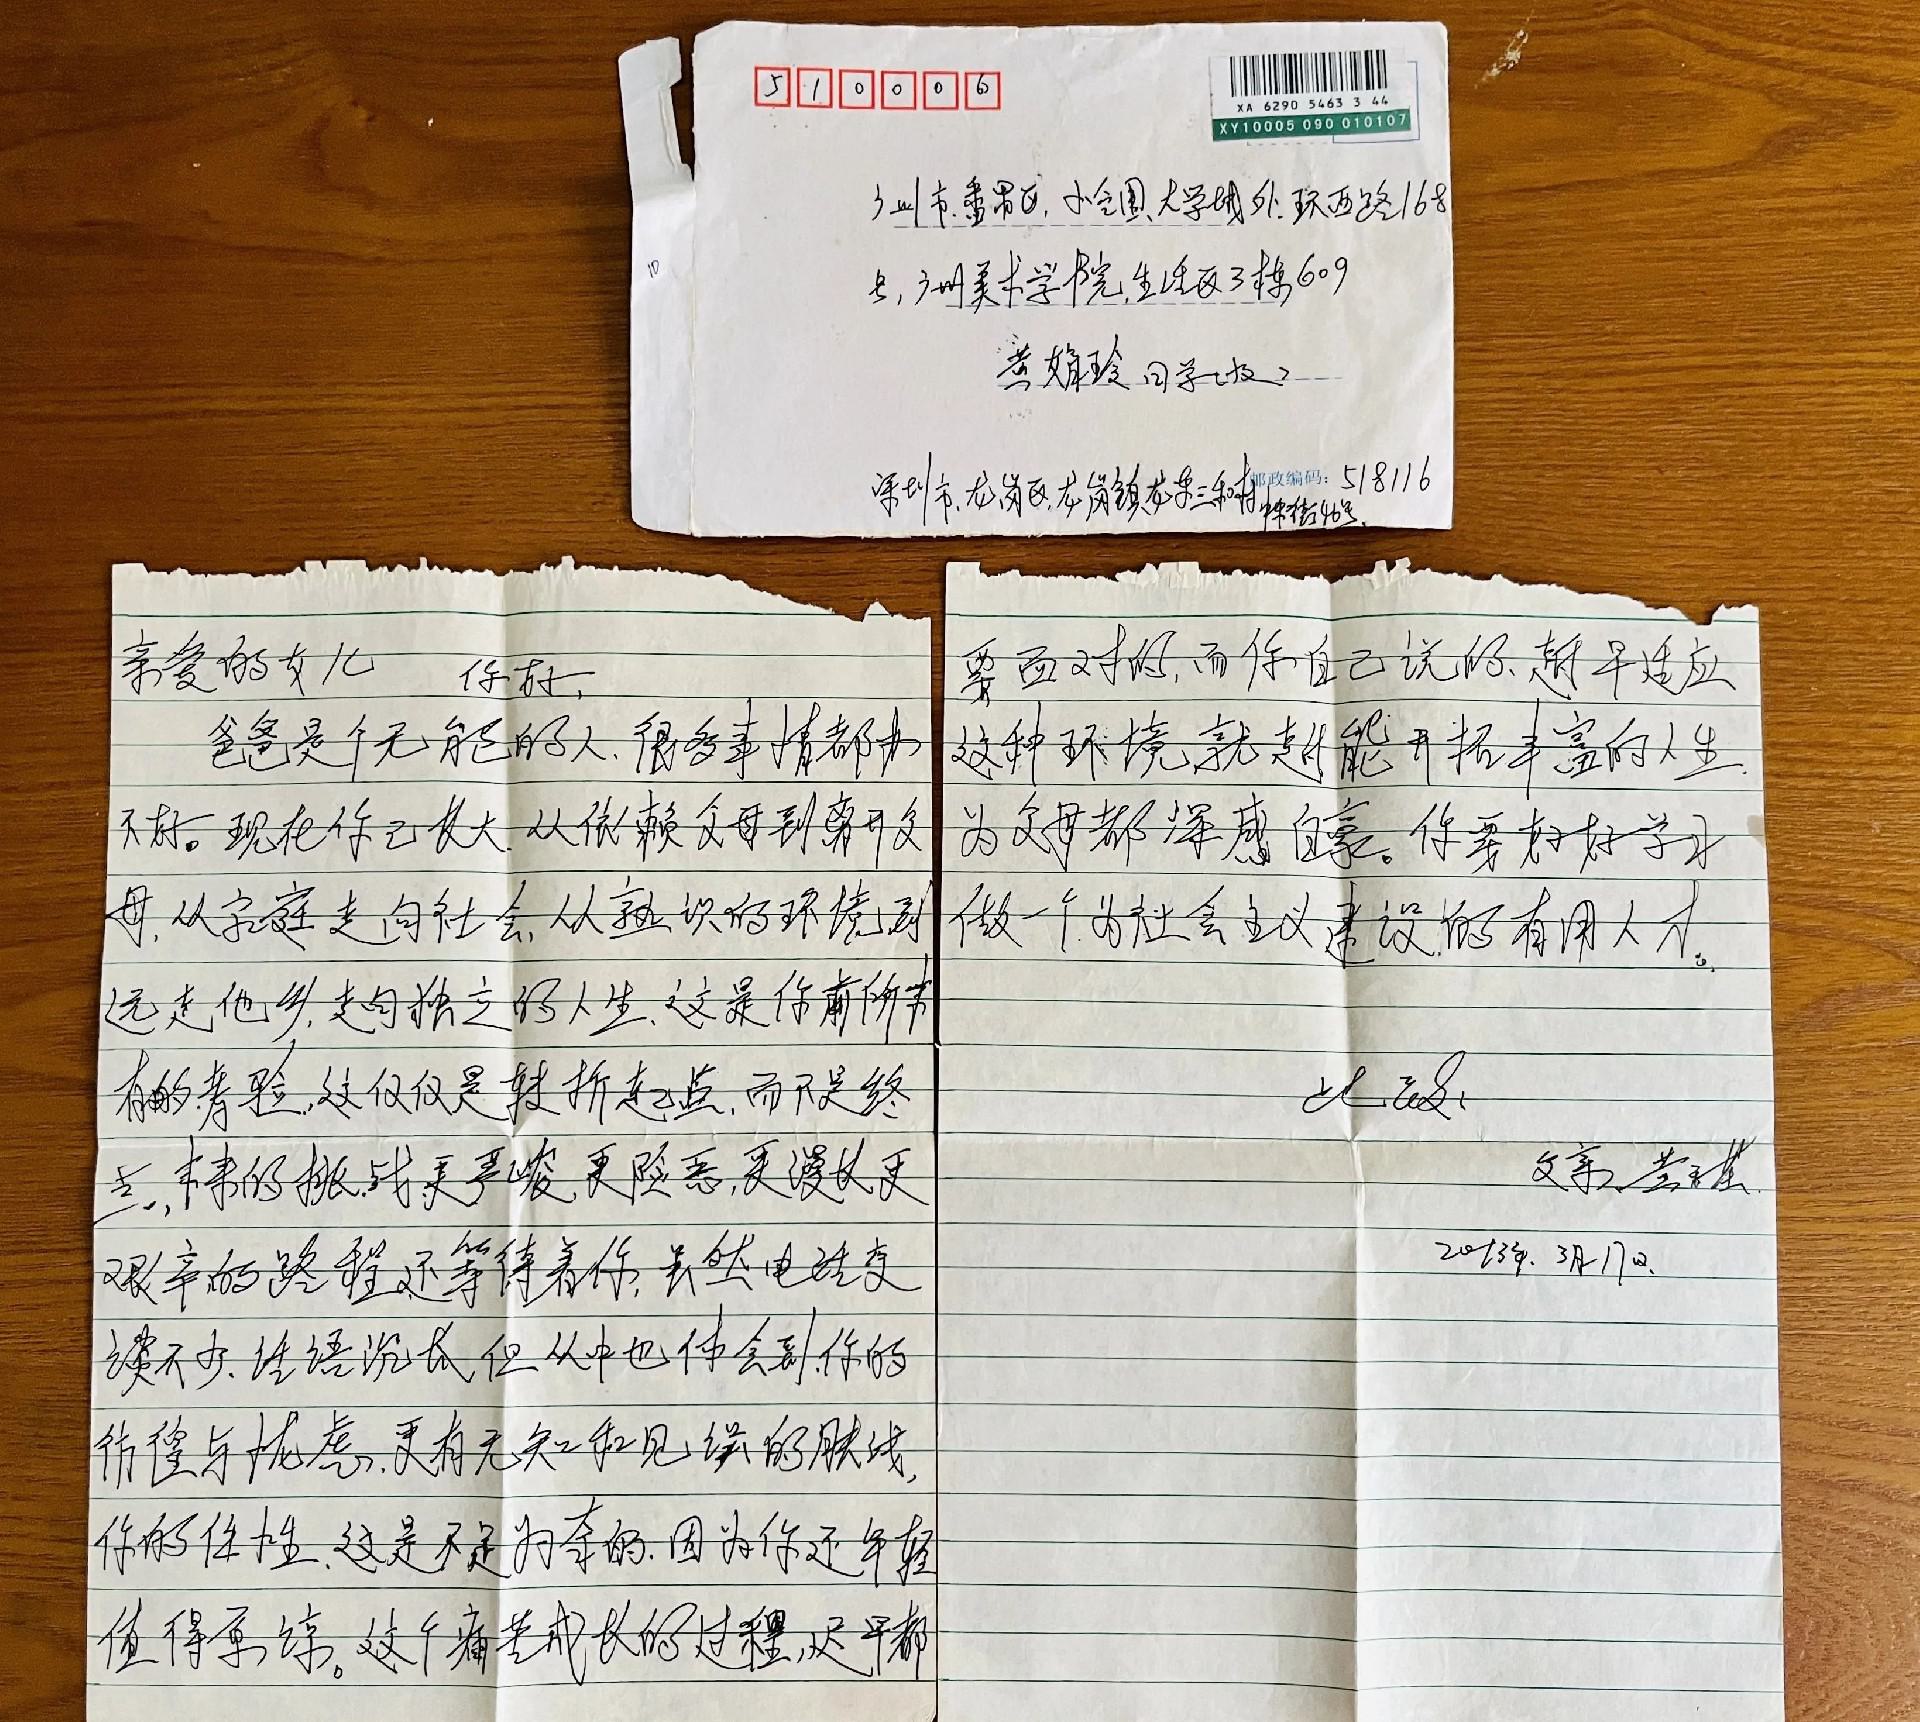 510006
XA 6290 5463 3 44
XY10005 090 010107
广州市.番禺区.小谷围.大学城外.环西路168
号,广州美术学院.生活区3栋609
黄娟玲 同学 收
邮政编码: 518116
深圳市.龙岗区.龙岗镇龙东三和村
街46号.
10
亲爱的女儿 你好,
爸爸是个无能的人.很多事情都办
不好。现在你已长大.从依赖父母到离开父
母,从家庭走向社会,从熟识的环境到
远走他乡,走向独立的人生.这是你前所未
有的考验.这仅仅是转折起点.而不是终
点.未来的挑战更严峻.更险恶,更漫长更
艰辛的路程还等待着你,虽然电话交
谈不少.话语冗长,但从中也体会到.你的
彷徨与忧虑.更有无知和见识的肤浅,
你的任性.这是不足为奇的.因为你还年轻
值得原谅。这个痛苦成长的过程,迟早都
要面对的,而你自己说的.越早适应
这种环境.就越能开拓丰富的人生.
为父母都深感自豪。你要好好学习
做一个为社会主义建设的有用人才。
此致.
父亲.黄
2013年.3月17日.